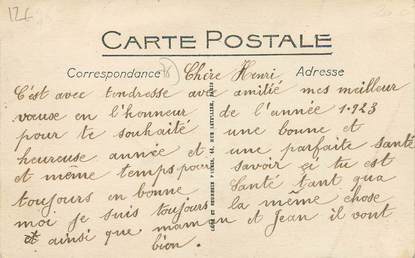 126
CARTE POSTALE
Correspondance Adresse
78
Chère Henri
C'est avec tendresse avec amitié mes meilleur
vœux en l'honneur de l'année 1.923
pour te souhaité une bonne et
heureuse année et une parfaite santé
et même temps pour savoir si tu est
toujours en bonne Santé tant qua
moi je suis toujours la même chose
et ainsi que maman et Jean il vont
bien.